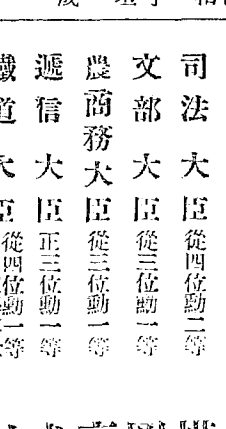 司法大臣從四位勳二等
文部大臣從三位勳一等
農商務大臣從三位勳一等
遞信大臣正三位勳一等
鐵道大臣從四位勳一等